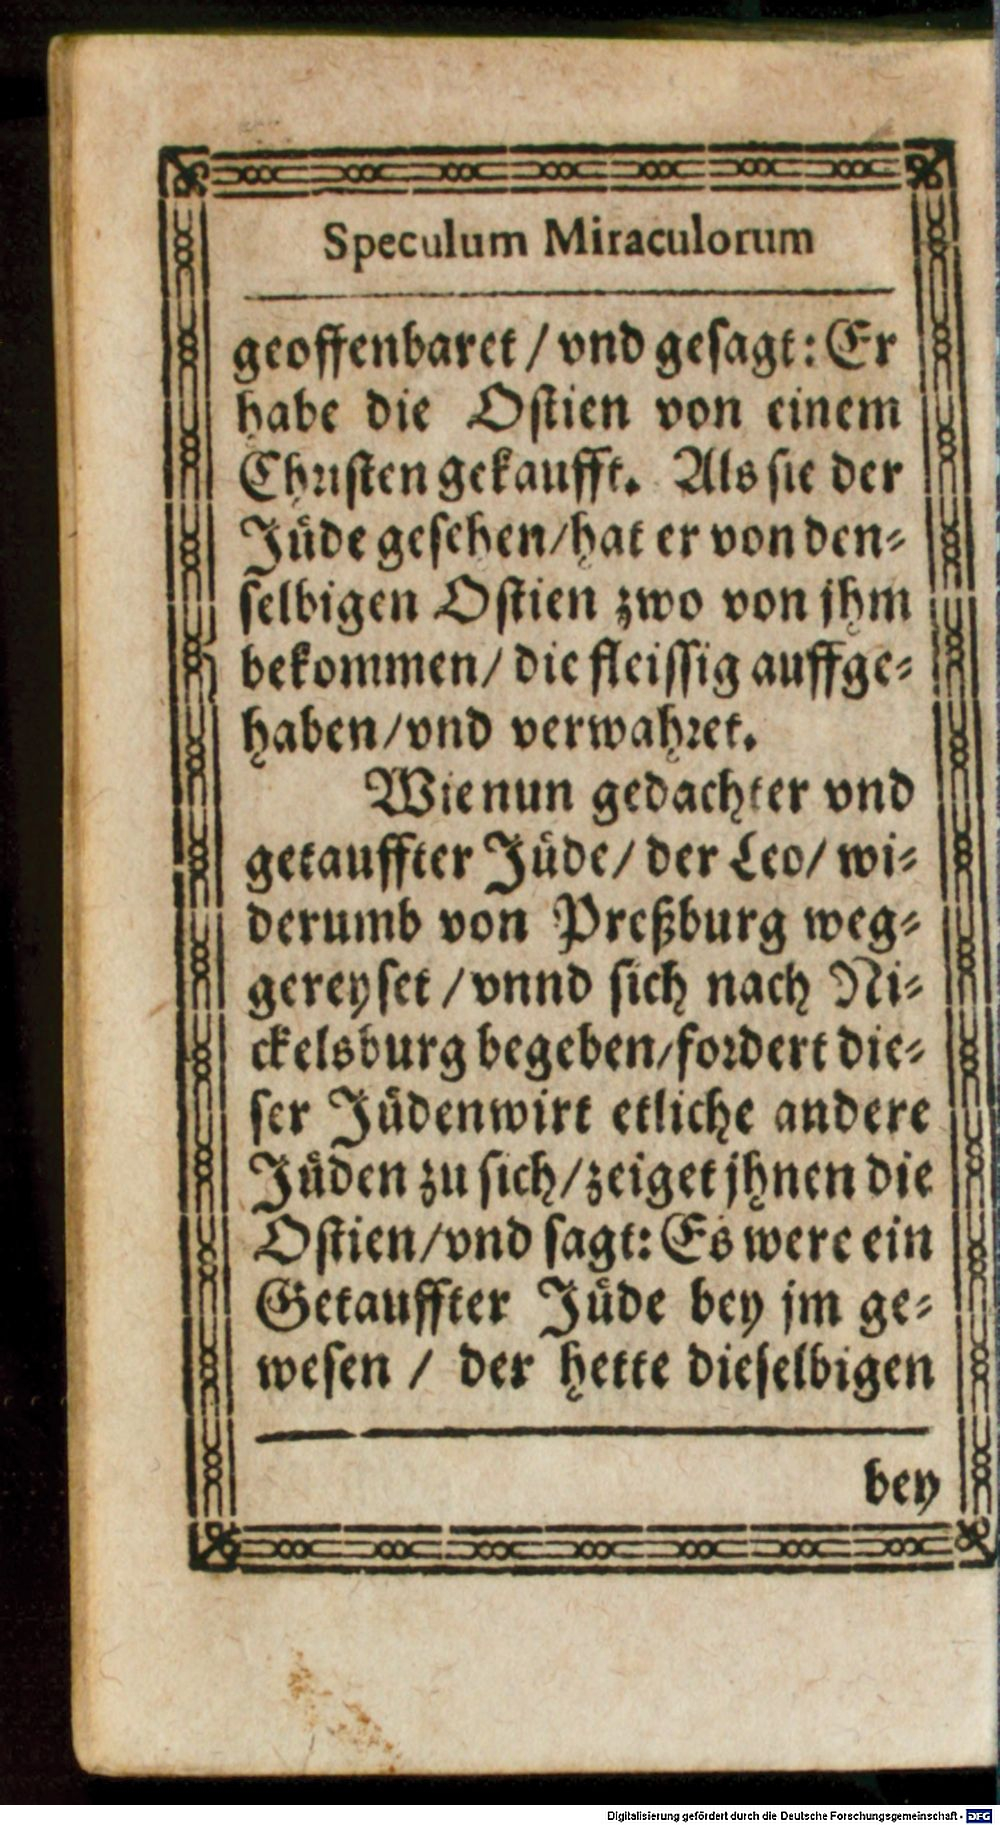 Speculum Miraculorum
geoffenbaret / vnd gesagt: Er
habe die Ostien von einem
Christen gekaufft. Als sie der
Jüde gesehen/hat er von den-
selbigen Ostien zwo von jhm
bekommen/ die fleissig auffge-
haben/vnd verwahret.
Wie nun gedachter vnd
getauffter Jüde/ der Leo/ wi-
derumb von Preßburg weg-
gereyset / vnnd sich nach Ni-
ckelsburg begeben/fordert die-
ser Jüdenwirt etliche andere
Jüden zu sich/zeiget jhnen die
Ostien/vnd sagt: Es were ein
Getauffter Jüde bey jm ge-
wesen / der hette dieselbigen
bey
Digitalisierung gefördert durch die Deutsche Forschungsgemeinschaft - DFG